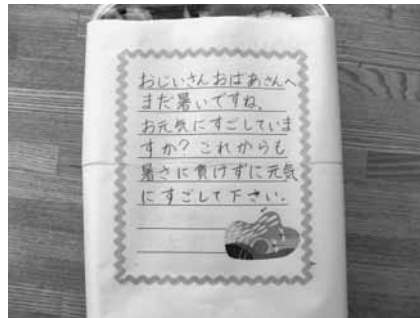 おじいさんおばあさんへ
まだ暑いですね。
お元気にすごしていま
すか？これからも
暑さに負けずに元気
にすごして下さい。